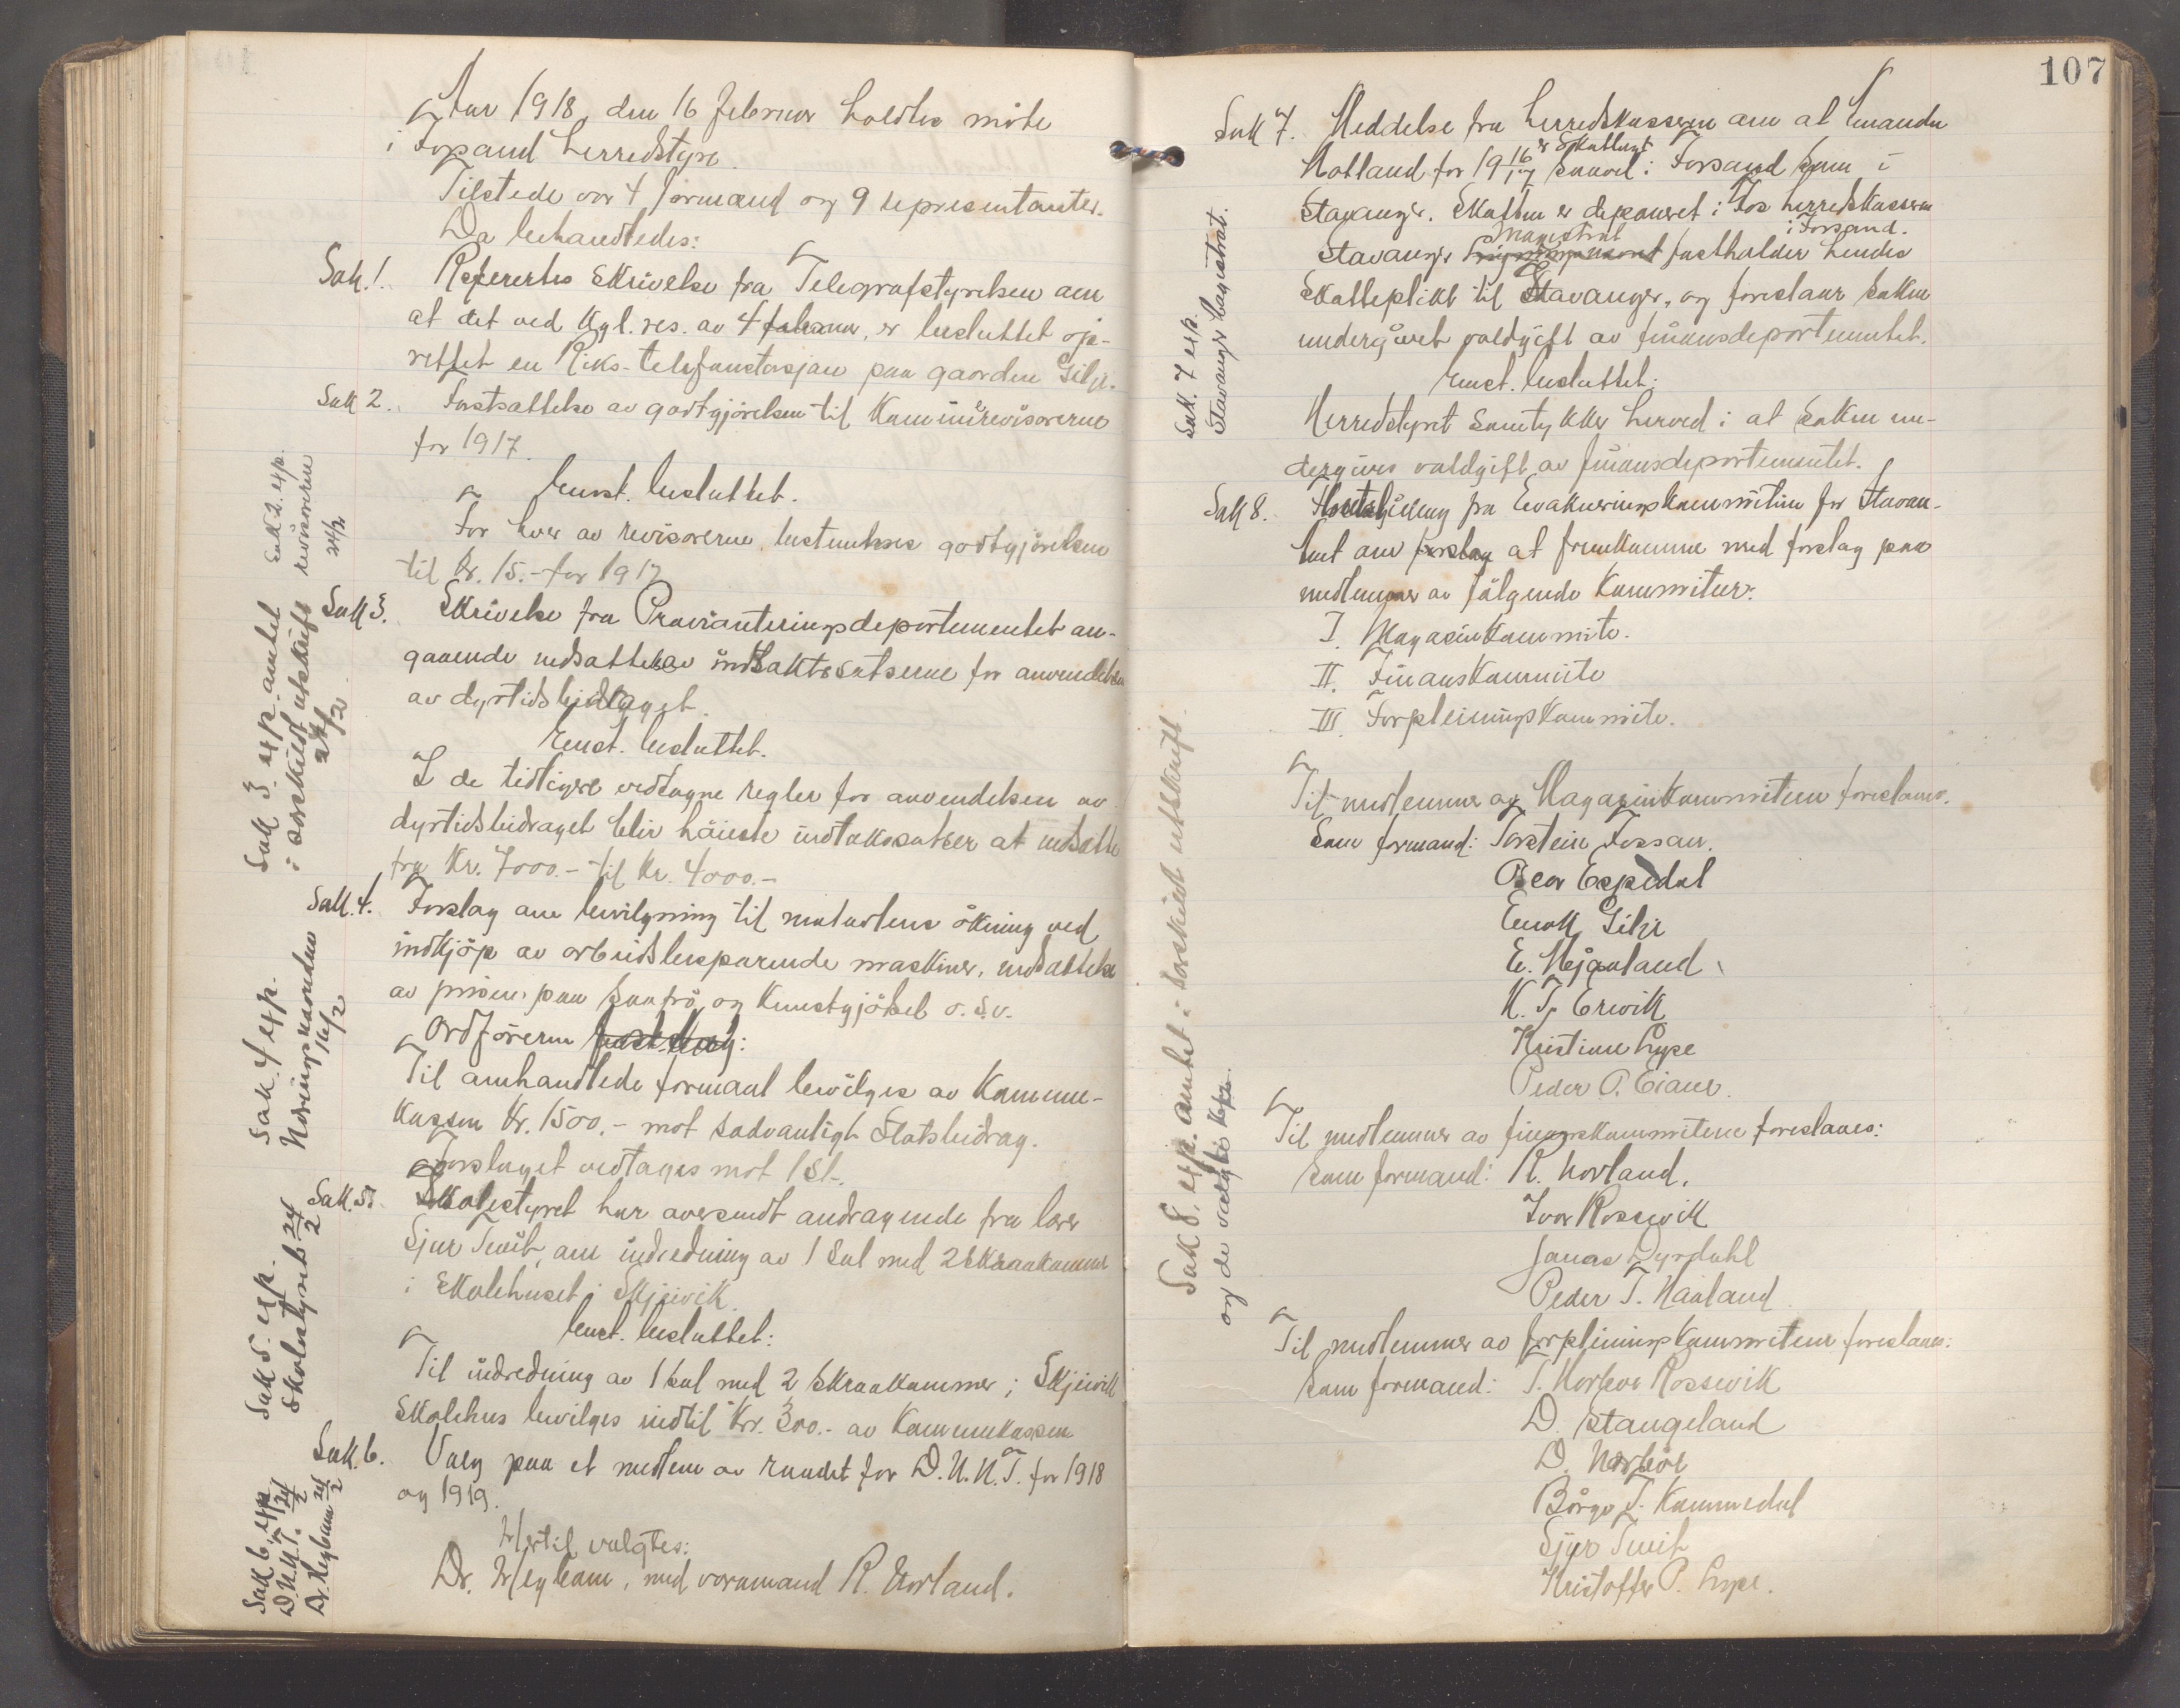 Aar 1918, den 16 februar holdtes möte
i Forsand herredstyre.
Tilstede var 4 formænd og 9 representanter.
Da behandledes:
Sak 1. Refererte Skrivelse fra Telegrafstyrelsen om
at det ved Kgl. res. av 4 februar, er besluttet op-
rettet en Riks-telefonstasjon paa gaarden Gilje.
Sak 2. Fastsættelse av godtgjörelsen til Kommunerevisorerne
for 1917.
Enst. besluttet.
For hver av revisorerne bestemtes godtgjörelsen
til Kr. 15.- for 1917
Sak 3. Skrivelse fra Provianteringsdepartementet an-
gaaende nedsættelse av indtaktssatserne for anvendelsen
av dyrtidsbidraget.
Enst. besluttet.
I de tidligere vedtagne regler for anvendelsen av
dyrtidsbidraget blir höieste indtækssatser at nedsætte
fra Kr. 7000.- til Kr. 4000.-
Sak. 4. Forslag om bevilgning til matavlens ökning ved
indkjöp av arbeidsbesparende maskiner, nedsættelse
av prisen paa saafrö og Kunstgjödsel o.s.v.
Ordföreren
Til omhandlede formaal bevilges av Kommune-
kassen Kr. 1500.- mot sædvanligt Statsbidrag.
Forslaget vedtages mot 1 St.
Sak. 5. Skolestyret har oversendt andragende fra lærer
Sjur Tveit, om indredning av 1 sal med 2 skraakammer
i Skolehuset i Skjeivik.
Enst. besluttet:
Til indredning av 1 sal med 2 skraakammer i Skjeivik
Skolehus bevilges indtil Kr. 300.- av Kommunekassen
Sak. 6. Valg paa et medlem av raadet for D.U.N.T. for 1918
og 1919.
Hertil valgtes:
Dr. Heybom, med varamand R. Norland.
Sak 2. exp.
revisorerne
24/2
Sak 3. exp. amtet
i særskildt utskrift
24/2
Sak 4 exp.
Næringsnevnden
16/2
Sak 5. exp.
Skolestyret 24/2
Sak 6. exp.
D.U.N.T. 24/2
Dr. Heybom 24/2
107
Sak 7. Meddelse fra herredskasseren om at Amanda
Hatland for 1916/17 er skatlagt saavel i Forsand som i
Stavanger. Skatten er deponeret i Fos herredskasseren
i Forsand.
Stavanger Magistrat fastholder hendes
Skatteplikt til Stavanger, og foreslaar saken
undergivet voldgift av finansdepartementet.
Enst. besluttet:
Herredstyret samtykker herved i at saken un-
dergives voldgift av finansdepartementet.
Sak 8. Henstilling fra Evakueringskommitéen for Stavan-
amt om forslag at fremkomme med forslag paa
medlemmer av fölgende Kommiteer:
I. Magasinkommite.
II. Finanskommite
III. Forpleiningskommite.
Til medlemmer av Magasinkommiteen foreslaaes.
Som formand: Torstein Fossan.
Peer Espedal
Enok Gilje
E. Mejaaland
K. T. Ervik
Kristian Lype
Peder P. Eiane.
Til medlemmer av finanskommiteene foreslaaes:
Som formand: R. Norland.
Ivar Rossevik
Jonas Dyrdahl
Peder T. Haaland
Til medlemmer av forpleiningskommiteen foreslaaes:
Som formand: T. Norleve Rossevik
D. Stangeland
D. Nærböe
Börge T. Kommedal
Sjur Tveit
Kristoffer P. Lype.
Sak. 7 exp.
Stavanger Magistrat.
Sak 8. exp. amtet i særskildt utskrift
og de valgte exp.